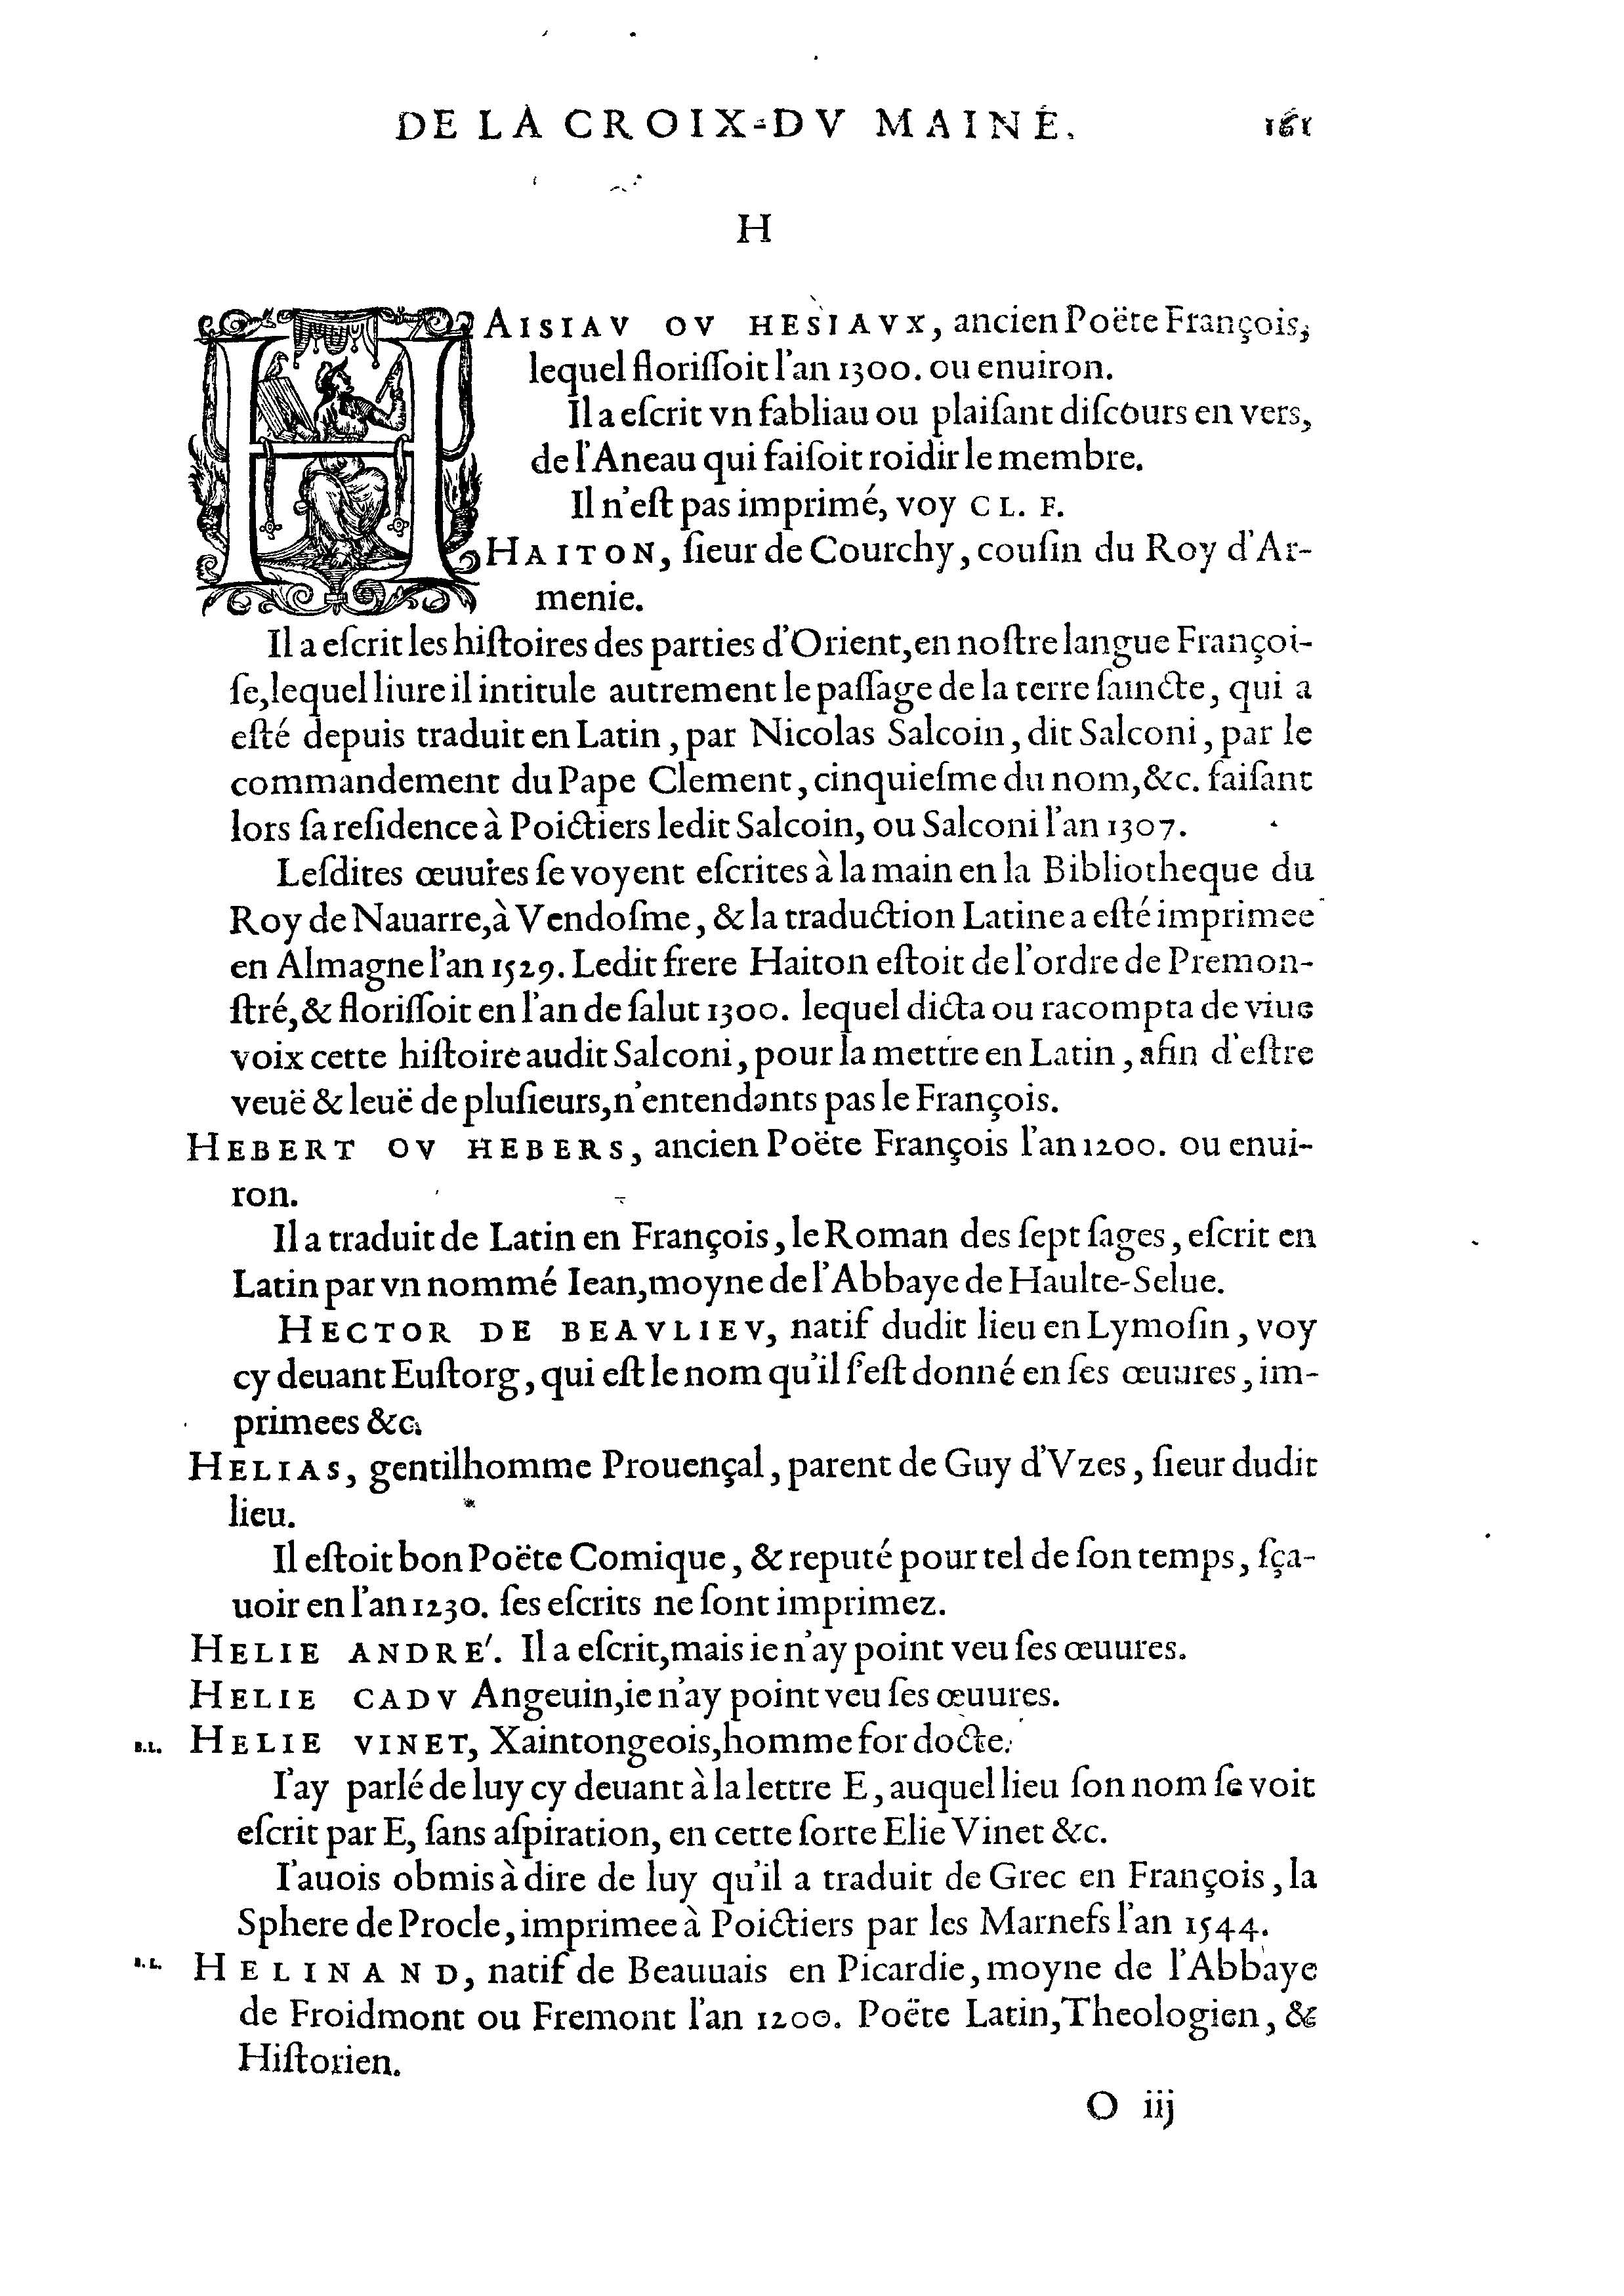 DE LA CROIX-DV MAINE. 161
H
HAISIAV OV HESIAVX, ancien Poëte François,
lequel florissoit l'an 1300. ou enuiron.
Il a eſcrit vn fabliau ou plaiſant diſcours en vers,
de l'Aneau qui faiſoit roidir le membre.
Il n'eſt pas imprimé, voy CL. F.
HAITON, ſieur de Courchy, couſin du Roy d'Ar-
menie.
Il a eſcrit les hiſtoires des parties d'Orient, en noſtre langue Françoi-
ſe, lequel liure il intitule autrement le paſſage de la terre ſaincte, qui a
eſté depuis traduit en Latin, par Nicolas Salcoin, dit Salconi, par le
commandement du Pape Clement, cinquieſme du nom, &c. faiſant
lors ſa reſidence à Poictiers ledit Salcoin, ou Salconi l'an 1307.
Leſdites œuures ſe voyent eſcrites à la main en la Bibliotheque du
Roy de Nauarre, à Vendoſme, & la traduction Latine a eſté imprimee
en Almagne l'an 1529. Ledit frere Haiton eſtoit de l'ordre de Premon-
ſtré, & floriſſoit en l'an de ſalut 1300. lequel dicta ou racompta de viue
voix cette hiſtoire audit Salconi, pour la mettre en Latin, afin d'eſtre
veuë & leuë de pluſieurs, n'entendants pas le François.
HEBERT OV HEBERS, ancien Poëte François l'an 1200. ou enui-
ron.
Il a traduit de Latin en François, le Roman des ſept ſages, eſcrit en
Latin par vn nommé Iean, moyne de l'Abbaye de Haulte-Selue.
HECTOR DE BEAVLIEV, natif dudit lieu en Lymoſin, voy
cy deuant Euſtorg, qui eſt le nom qu'il ſ'eſt donné en ſes œuures, im-
primees &c.
HELIAS, gentilhomme Prouençal, parent de Guy d'Vzes, ſieur dudit
lieu.
Il eſtoit bon Poëte Comique, & reputé pour tel de ſon temps, ſça-
uoir en l'an 1230. ſes eſcrits ne ſont imprimez.
HELIE ANDRE'. Il a eſcrit, mais ie n'ay point veu ſes œuures.
HELIE CADV Angeuin, ie n'ay point veu ſes œuures.
B.L. HELIE VINET, Xaintongeois, homme for docte.
I'ay parlé de luy cy deuant à la lettre E, auquel lieu ſon nom ſe voit
eſcrit par E, ſans aſpiration, en cette ſorte Elie Vinet &c.
I'auois obmis à dire de luy qu'il a traduit de Grec en François, la
Sphere de Procle, imprimee à Poictiers par les Marnefs l'an 1544.
B.L. HELINAND, natif de Beauuais en Picardie, moyne de l'Abbaye
de Froidmont ou Fremont l'an 1200. Poëte Latin, Theologien, &
Hiſtorien.
O iij